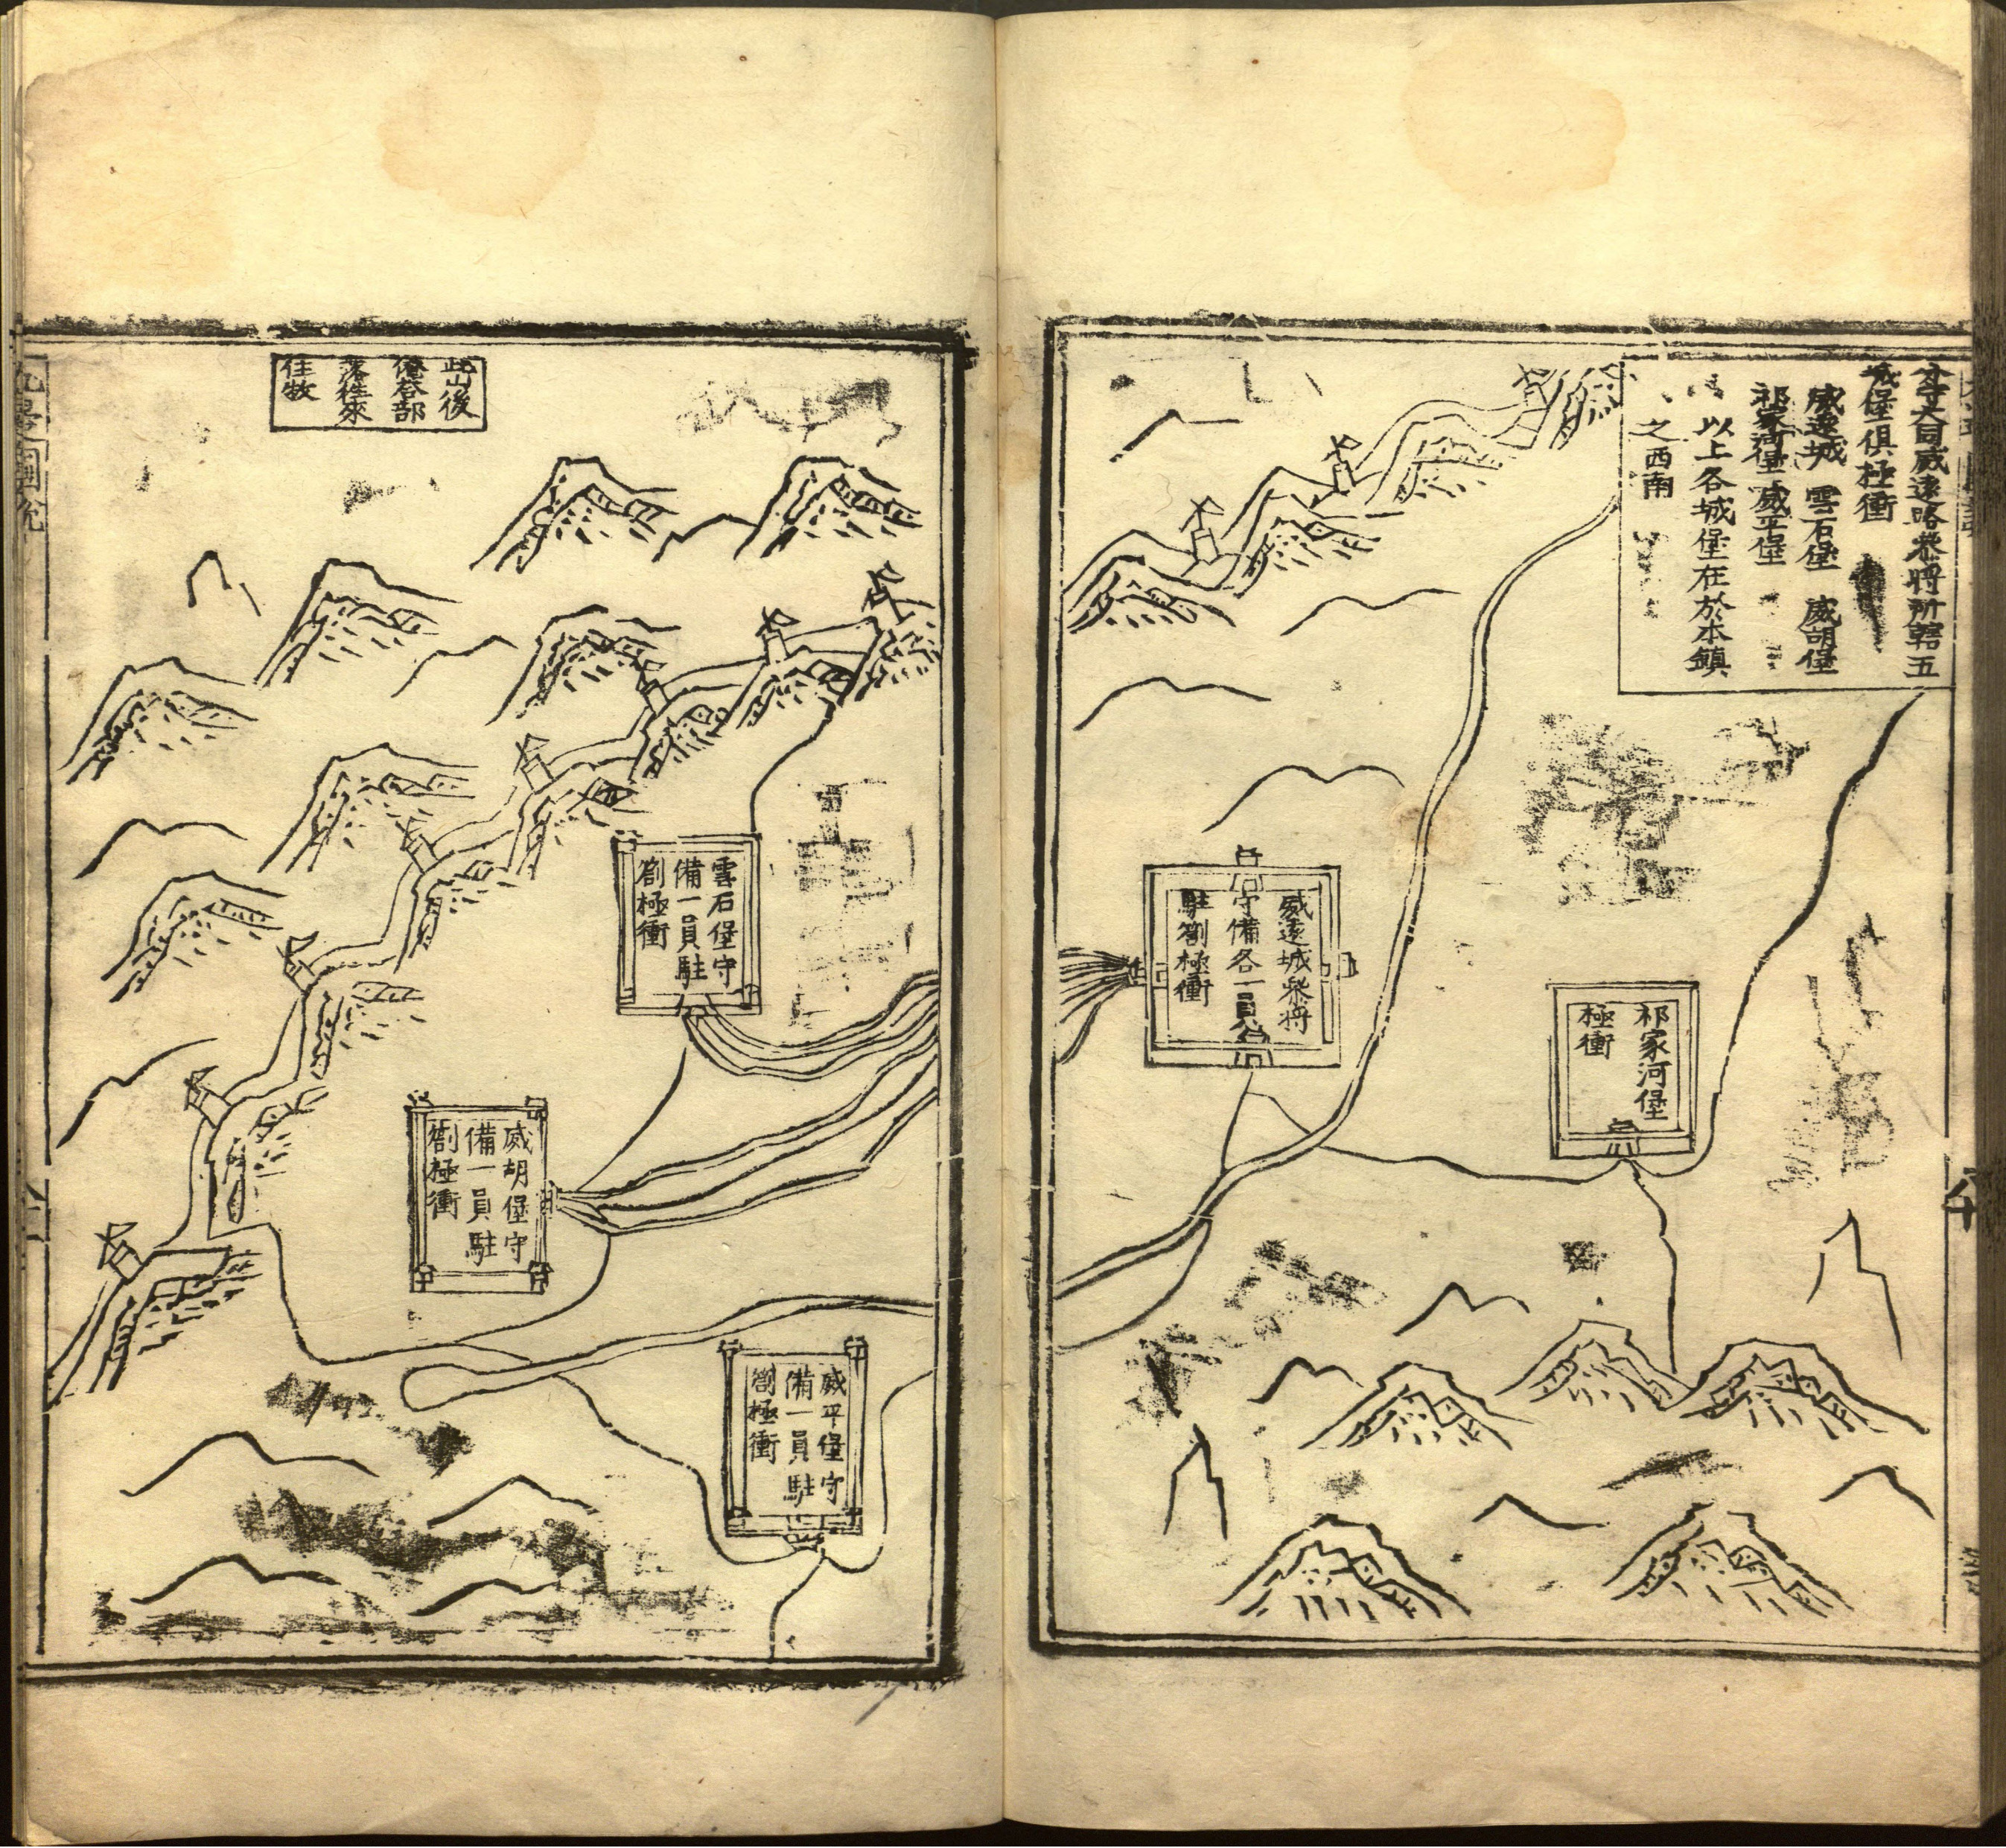 分守大同威遠路叅將所轄五
城堡俱極衝
威遠城　雲石堡　威胡堡
祁家河堡　威平堡
以上各城堡在於本鎮
之西南
祁家河堡
極衝
威遠城叅將
守備各一員
駐劄極衝
八十
此山後
部
落徃來
住牧
雲石堡守
備一員駐
劄極衝
威胡堡守
備一員駐
劄極衝
威平堡守
備一員駐
劄極衝
九邊圖說